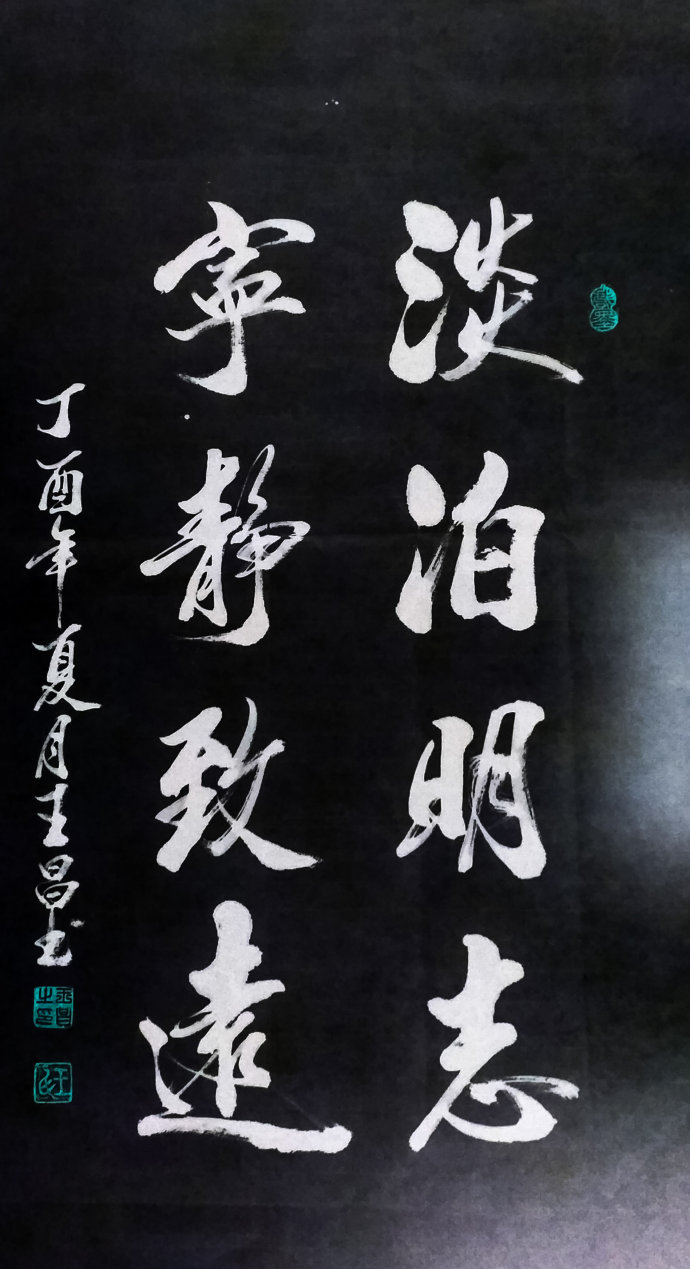 淡泊明志
寧靜致遠
丁酉年夏月王昌书